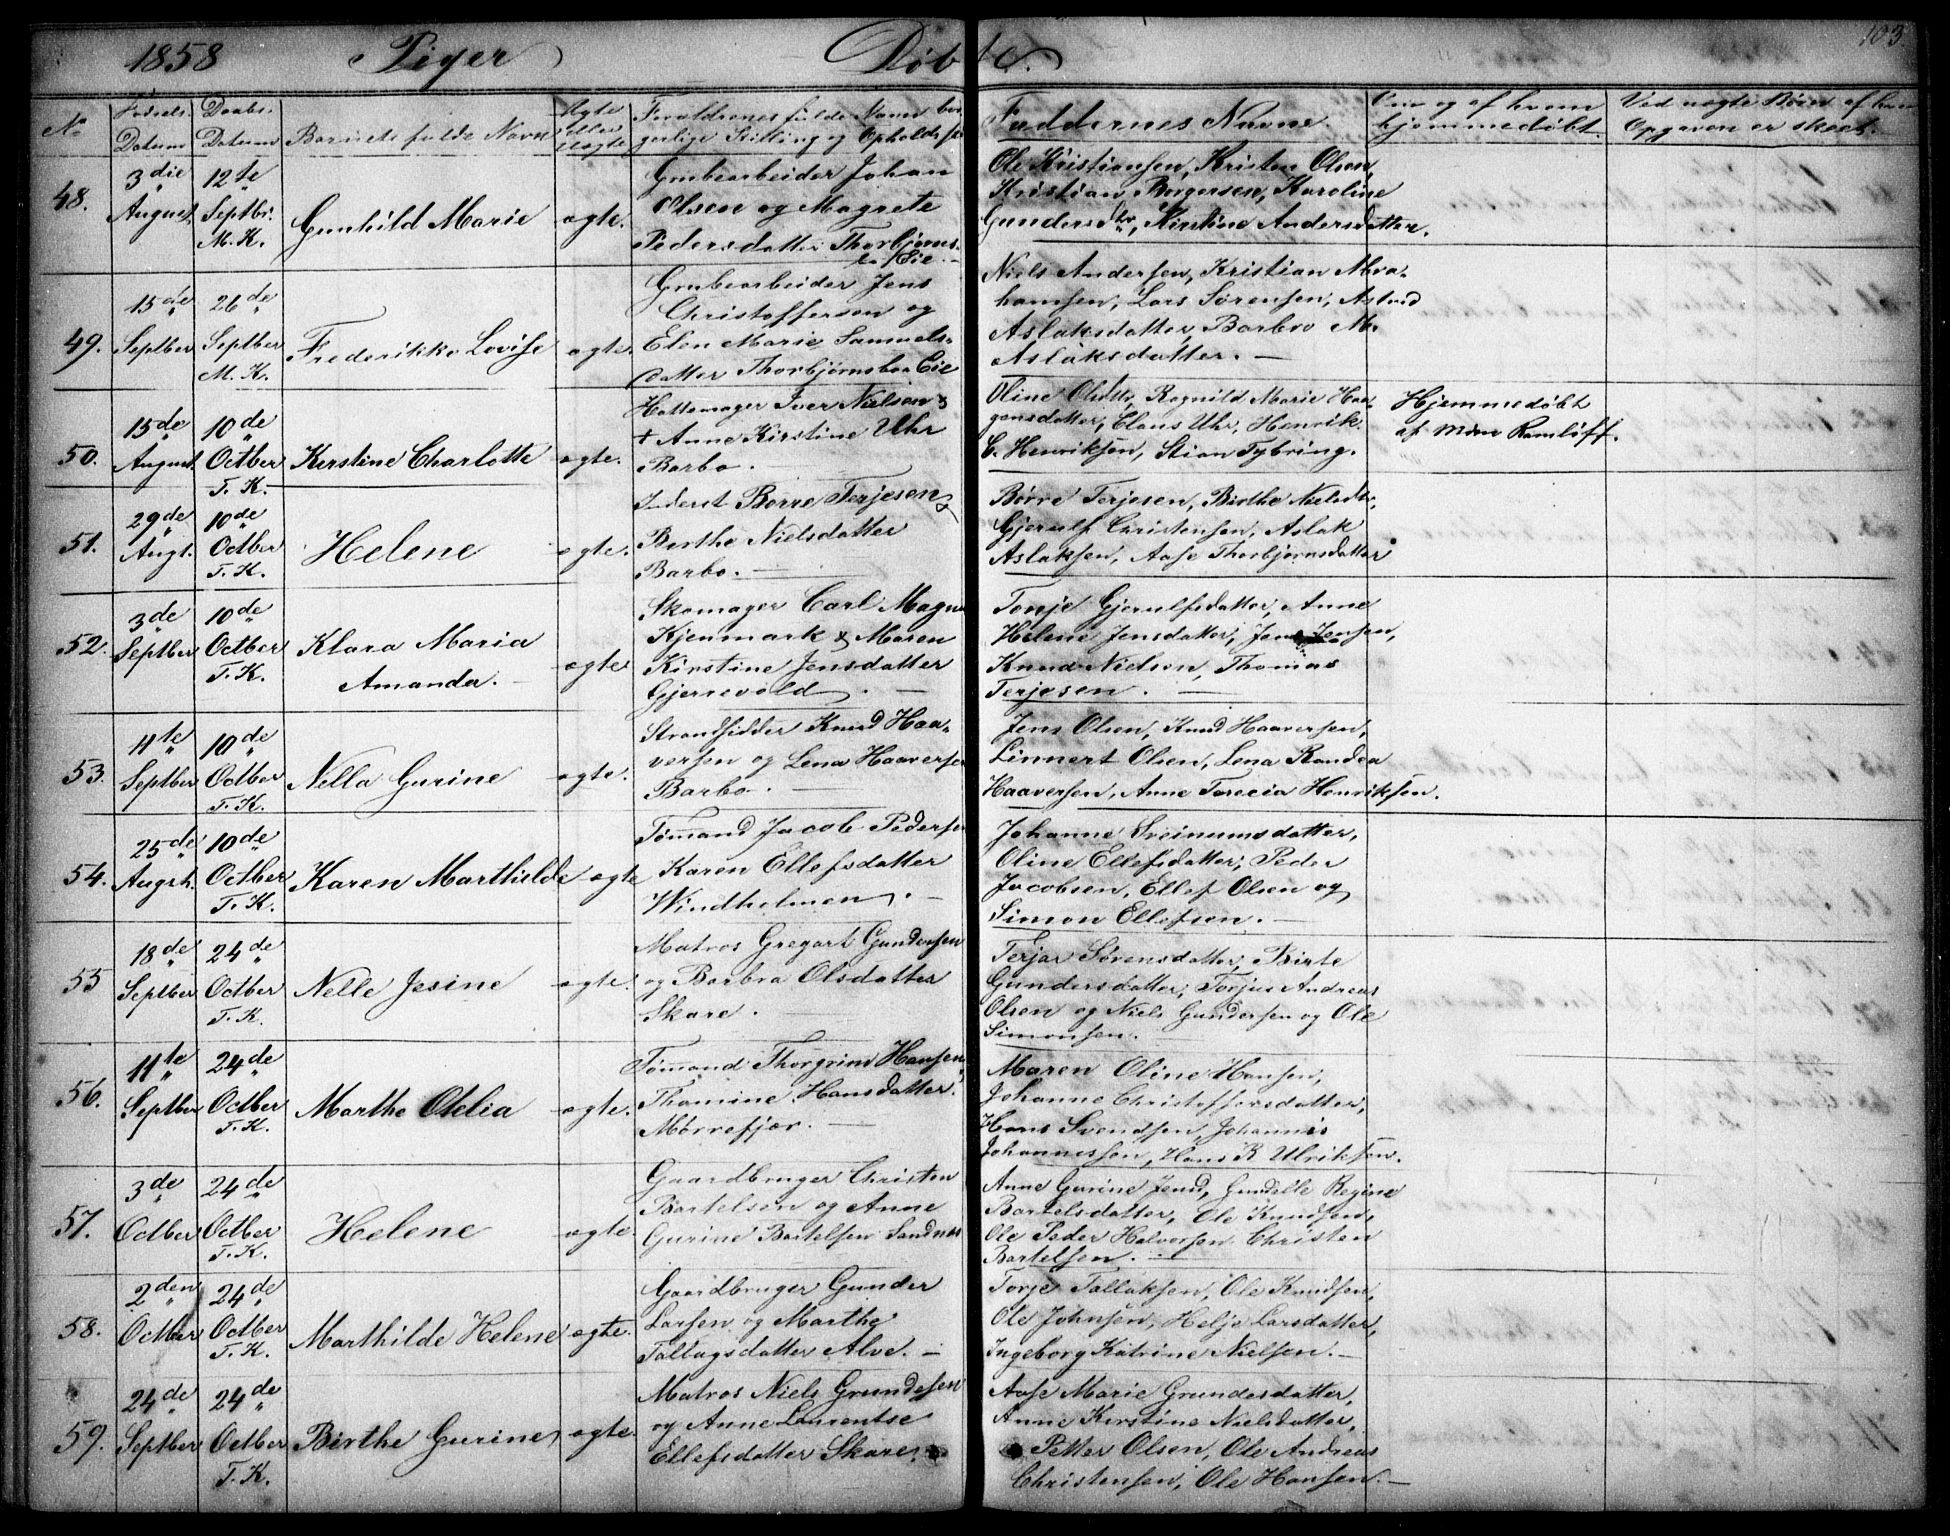 103
1858 Piger Døbte.
No
Fødsels Datum
Daabs Datum
Barnets fulde Navn
Ægte eller Uægte
Forældrenes fulde Navn borgerlige Stilling og Opholds
Faddernes Navne
Om og af hvem hjemmedøbt.
Ved uægte Børn af hvem Opgaven er skeet.
48.
3die August
12te Septbr. M. K.
Gunhild Marie
ægte.
Grubearbeider Johan
Olsen og Magrete
Pedersdatter Thorbjørns-
bo Eie.
Ole Kristiansen, Kristen Olsen,
Kristian Borgersen, Karoline
Gundersdtr, Kirstine Andersdatter.
49.
15de Septber
26de Septber M. K.
Frederikke Lovise
ægte.
Grubearbeider Jens
Christoffersen og
Elen Marie Samuels-
datter Thorbjørnsboe Eie
Niels Andersen, Kristian Abra-
hamsen, Lars Sørensen, Astrid
Aslaksdatter, Barbro M.
Aslaksdatter.
50.
15de August
10de Octber T. K.
Kirstine Charlotte
ægte.
Hattemager Iver Nielsen &
+ Anne Kirstine Uhr
Barbo.
Oline Olsdtr, Ragnild Marie Haa-
gensdatter, Claus Uhr, Henrik
C. Henriksen, Stian Tybring.
Hjemmedøbt
af Mdme Ramløff.
51.
29de Augt.
10de Octber T. K.
Helene
ægte.
Inderst Børre Terjesen &
Birthe Nielsdatter
Barbo.
Børre Terjesen, Birthe Nielsdtr,
Gjerulf Christensen, Aslak
Aslaksen, Aase Thorbjørnsdatter
52.
3de Septber
10de Octber T. K.
Klara Maria
Amanda.
ægte
Skomager Carl Magn
Kjenmark & Maren
Kirstine Jensdatter
Gjerrevold.
Tonje Gjerulfsdatter, Anne
Helene Jensdatter, Jens Jensen,
Knud Nielsen, Thomas
Terjesen.
53.
4te Septber
10de Octber T. K.
Nella Gurine
ægte.
Strandsidder Knud Haa-
versen og Lena Haaversen
Barbo.
Jens Olsen, Knud Haaversen,
Linnert Olsen, Lena Randea
Haaversen, Anne Terecia Henriksen.
54.
25de Augst.
10de Octber T. K.
Karen Marthilde
ægte
Tømand Jacob Pedersen
Karen Ellefsdatter
Windholmen.
Johanne Sveinumsdatter,
Oline Ellefsdatter, Peder
Jacobsen, Ellef Olsen og
Simon Ellefsen.
55
18de Septber
24de Octber T. K.
Nelle Jesine
ægte.
Matros Gregart Gundersen
og Barbra Olsdatter
Skare.
Terjar Sørensdatter, Birte
Gundersdatter, Torjus Andreas
Olsen og Niels Gundersen og Ole
Simonsen.
56.
11te Septber
24de Octber T. K.
Marthe Otelia
ægte.
Tømand Thorgrim Hansen
Thomine Hansdatter.
Mørrefjær.
Maren Oline Hansen,
Johanne Christoffersdatter,
Hans Svendsen, Johannis
Johannessen, Hans R Ulriksen.
57.
3de Octber
24de Octber T. K.
Helene
ægte.
Gaardbruger Christen
Bartelsen og Anne
Gurine Bartelsen Sandnæs
Anne Gurine Jensd, Gundelle Regine
Bartelsdatter, Ole Knudsen,
Ole Peder Halvorsen Christen
Bartelsen.
58.
2den Octber
24de Octber T. K.
Marthilde Helene
ægte.
Gaardbruger Gunder
Larsen og Marthe
Tallagsdatter Alve.
Torje Tallaksen, Ole Knudsen,
Ole Johnsen, Helje Larsdatter,
Ingeborg Katrine Nielsen.
59.
24de Septber
24de Octber T. K.
Birthe Gurine,
ægte.
Matros Niels Grundesen
og Anne Laurentse
Ellefsdatter Skare.
Aase Marie Grundesdatter,
Anne Kirstine Nielsdatter,
Petter Olsen, Ole Andreas
Christensen, Ole Hansen.